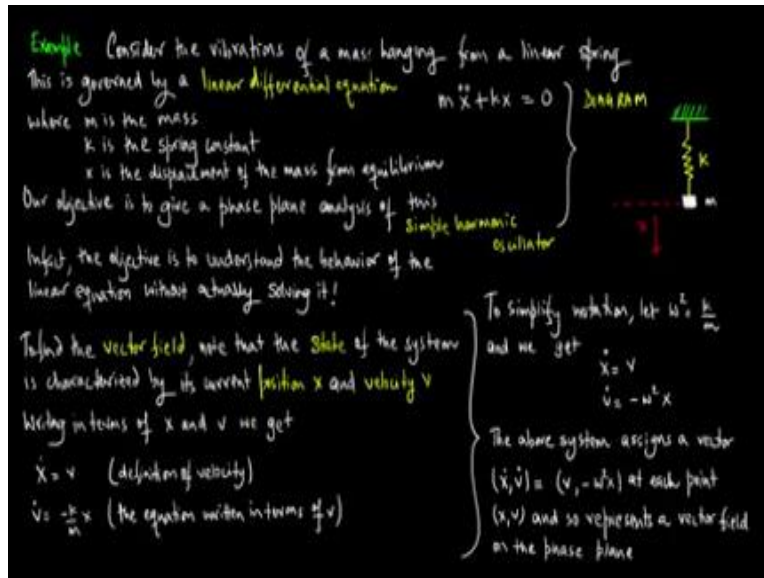 Example Consider the vibrations of a mass hanging from a linear spring
This is governed by a linear differential equation
mẍ + kx = 0
where m is the mass
k is the spring constant
x is the displacement of the mass from equilibrium
Our objective is to give a phase plane analysis of this
simple harmonic
oscillator
Infact, the objective is to understand the behavior of the
linear equation without actually solving it!
To find the vector field, note that the state of the system
is characterized by its current position x and velocity v
Writing in terms of x and v we get
ẋ = v (definition of velocity)
v̇ = -k/m x (the equation written in terms of v)
DIAGRAM
k
m
x
To simplify notation, let ω² = k/m
and we get
ẋ = v
v̇ = -ω² x
The above system assigns a vector
(ẋ, v̇) = (v, -ω²x) at each point
(x, v) and so represents a vector field
on the phase plane